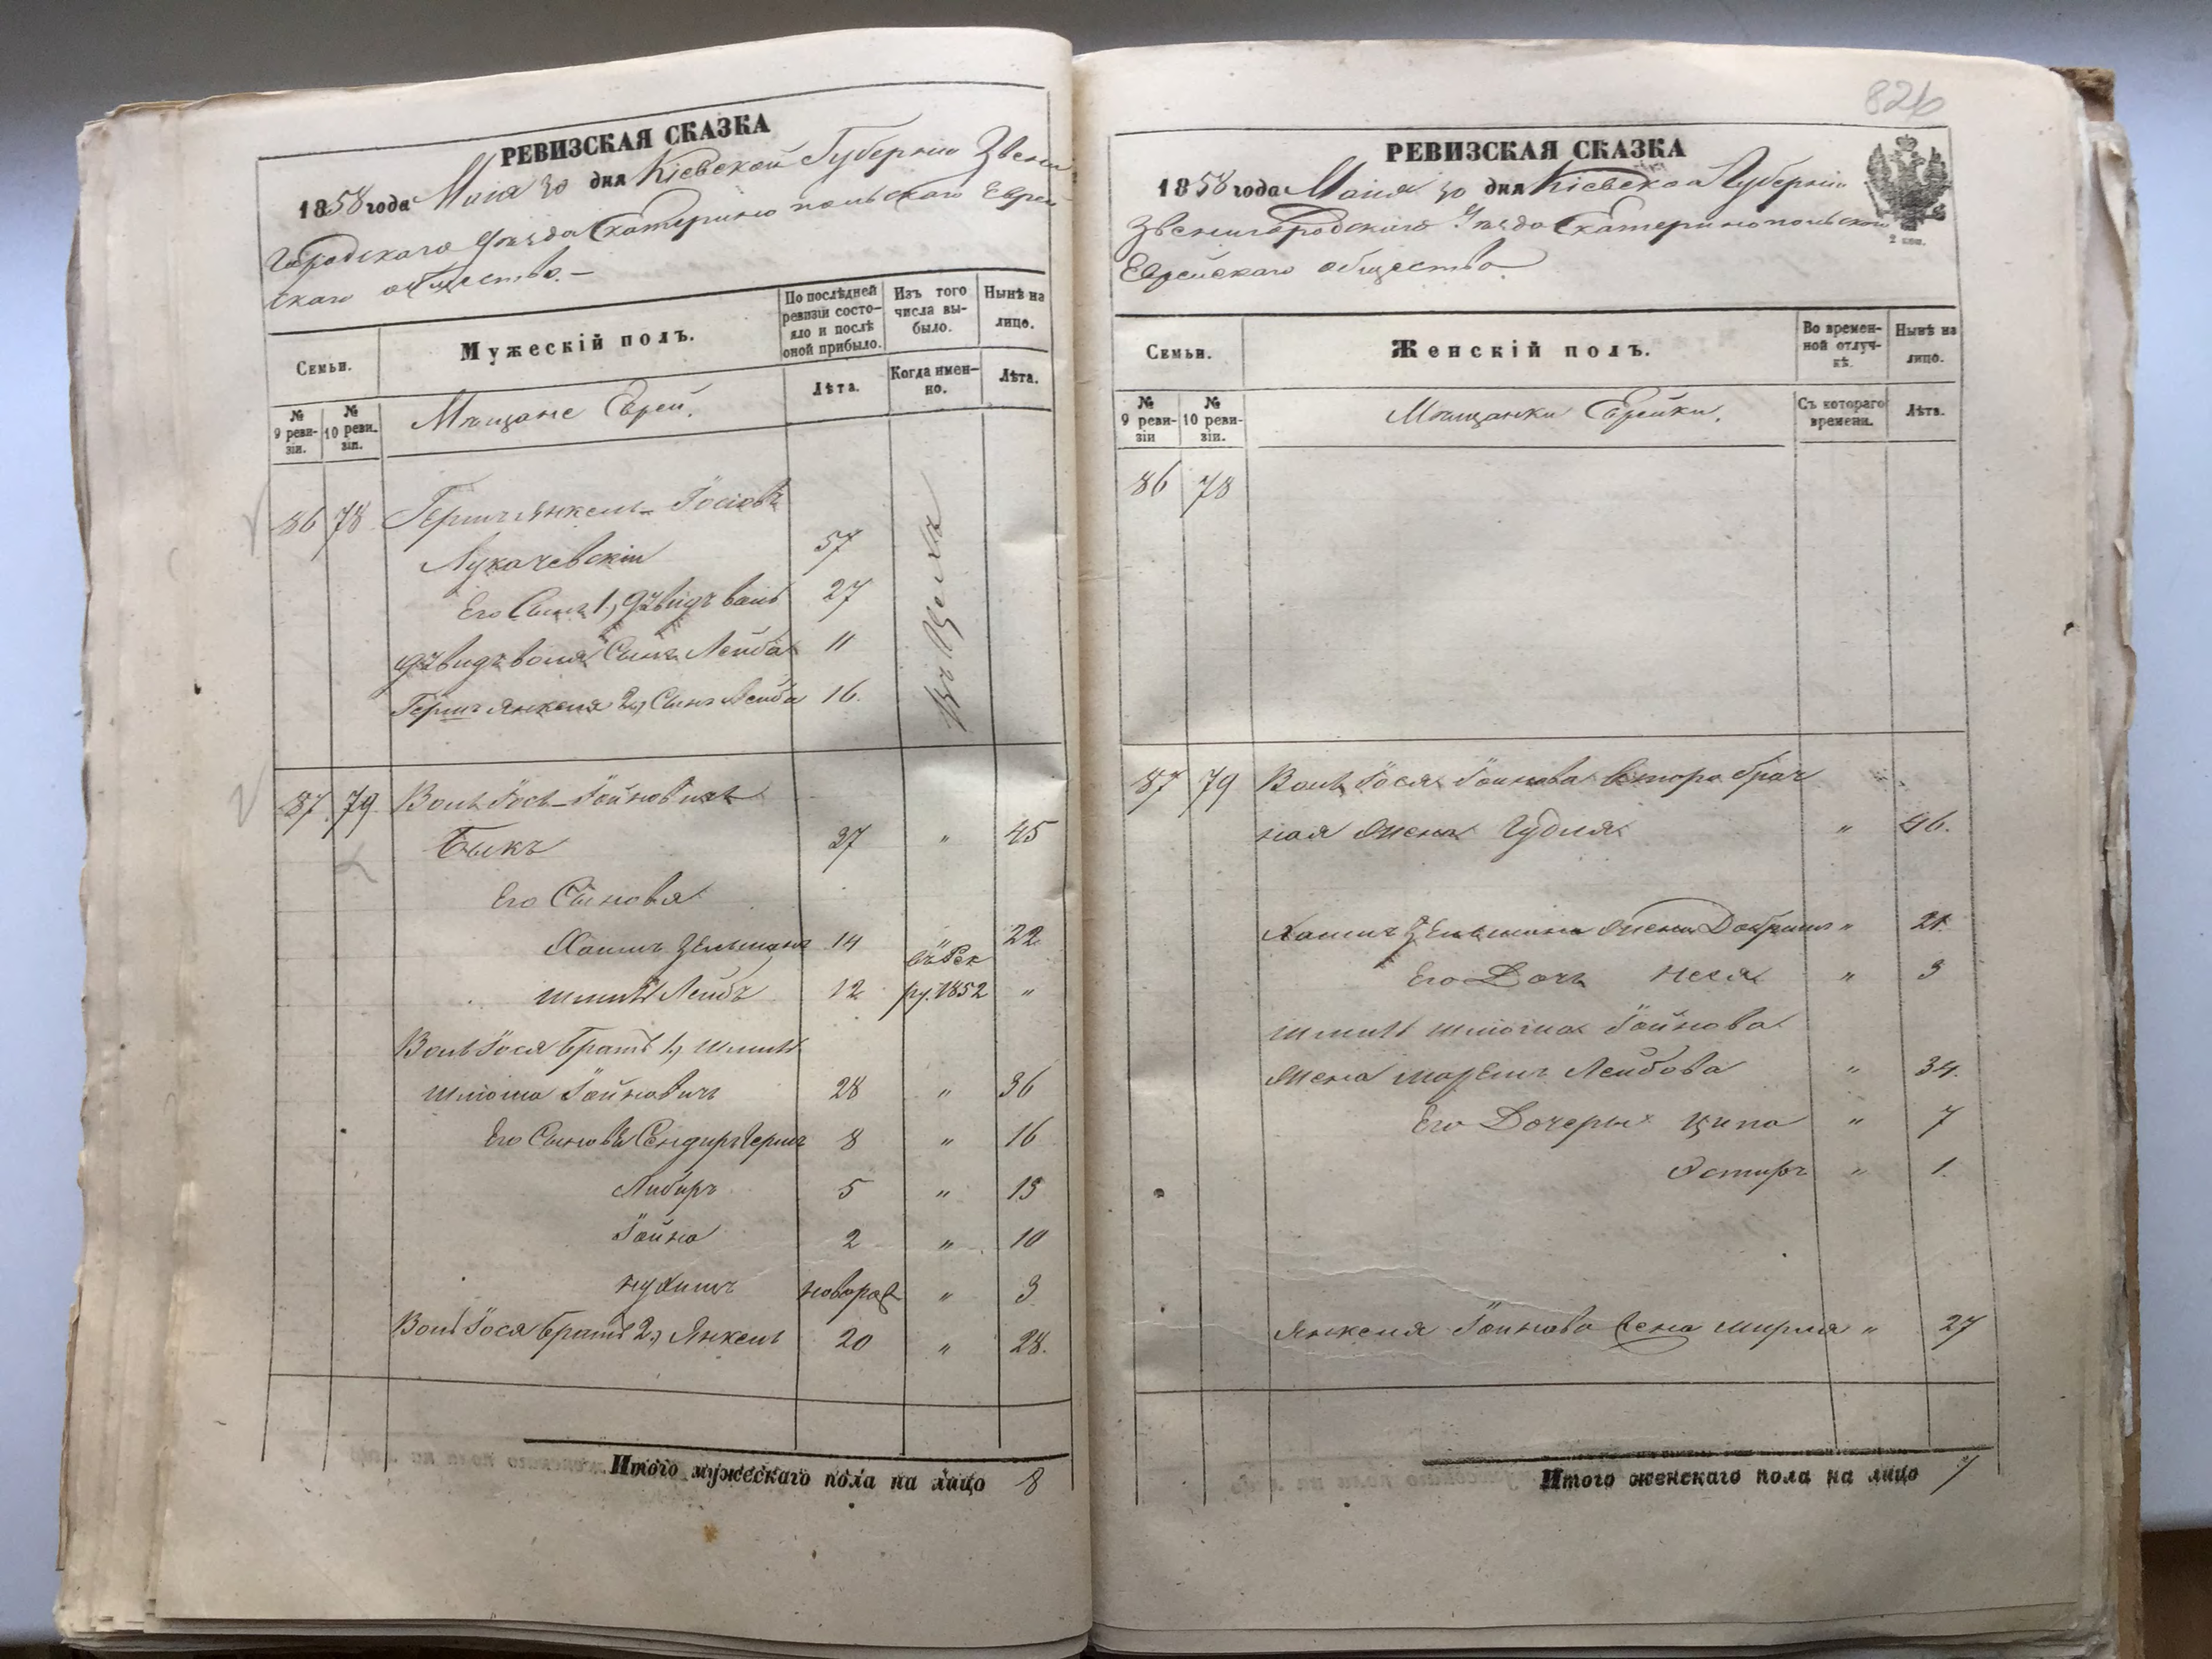 РЕВИЗСКАЯ СКАЗКА
1858 года Маія 30 дня Кіевской Губерніи Звени
городскаго Уѣзда Екатеринопольскаго Еврей
скаго общества.–
Семьи.
Мужескій полъ.
По послѣдней ревизіи состо-
яло и послѣ
оной прибыло.
Изъ того
числа вы-
было.
Нынѣ на
лицо.
№
9 реви-
зіи.
№
10 реви-
зіи.
Мѣщане Евреи.
Лѣта.
Когда имен-
но.
Лѣта.
86 78 Гершъ Янкель Іосіовъ
Лукачевскій 57
Его Сынъ 1, 27
Сынъ Лейба 11
Гершъ Янкеля 2, Сынъ Лейба 16.
87 79. Воль Іось Іойновичъ
Быкъ 27 " 45
Его Сыновья
Хаимъ Зельманъ 14 " 22
Шмиль Лейбъ 12 въ Рек
ру. 1852 "
Воль Іося братъ 1, Шмиль
Шліома Іойновичъ 28 " 36
Его Сыновья Сендиръ Гершъ 8 " 16
Либиръ 5 " 13
Іойна 2 " 10
Нухимъ новорож " 3
Воль Іося братъ 2, Янкель 20 " 28.
Итого мужескаго пола на лицо 8
826
РЕВИЗСКАЯ СКАЗКА
1858 года Маія 30 дня Кіевской Губерніи
Звенигородскаго Уѣзда Екатеринопольскаго
Еврейскаго общества
2 коп.
Семьи.
Женскій полъ.
Во времен-
ной отлуч-
кѣ.
Нынѣ на
лицо.
№
9 реви-
зіи
№
10 реви-
зіи.
Мѣщанки Еврейки.
Съ котораго
времени.
Лѣта.
86 78
87 79 Воль Іося Іойнова второбрач
ная жена Гудля " 46.
Хаимъ Зельмана жена Добришъ " 21.
Его Дочь Неся " 3
Шмиль Шліома Іойнова
жена Маріемъ Лейбова " 34.
Его Дочеры Ципа " 7
Эстиръ " 1.
Янкеля Іойнова жена Мирля " 27
Итого женскаго пола на лицо 7